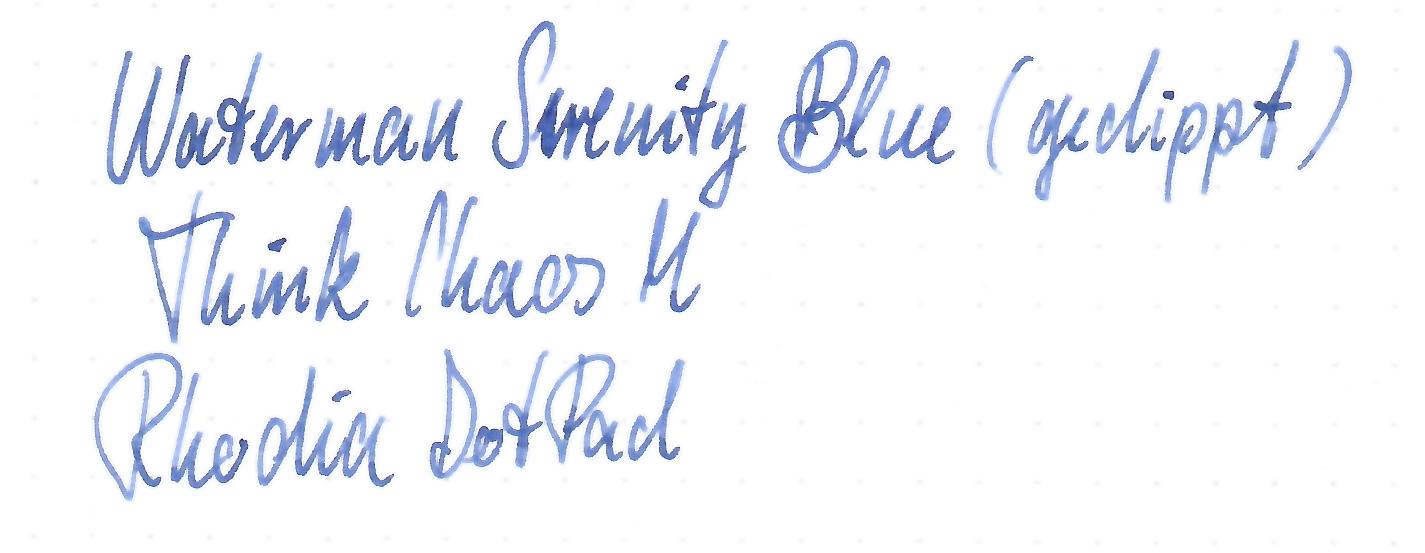 Waterman Serenity Blue (gedippt)
Think Chaos M
Rhodia DotPad